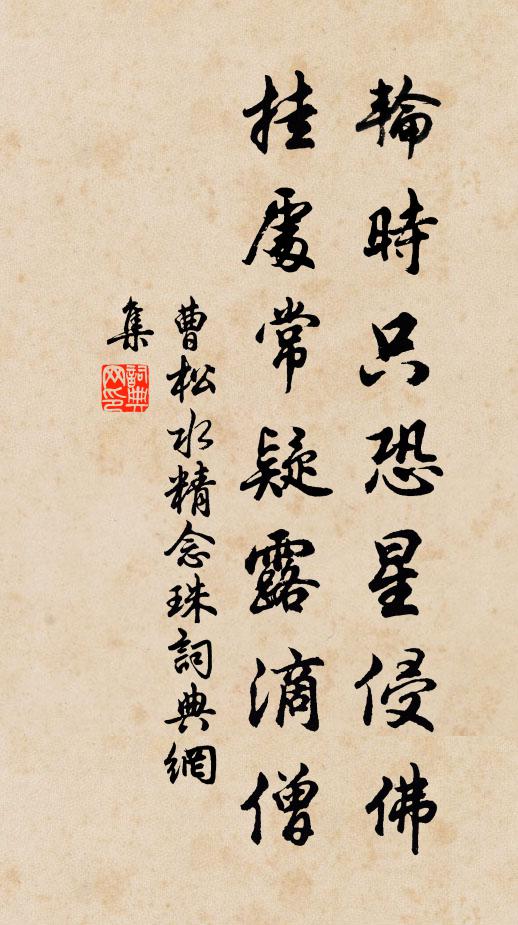 輪時只恐星侵佛
挂處常疑露滴僧
曹松水精念珠詞典網
集
詞典網印